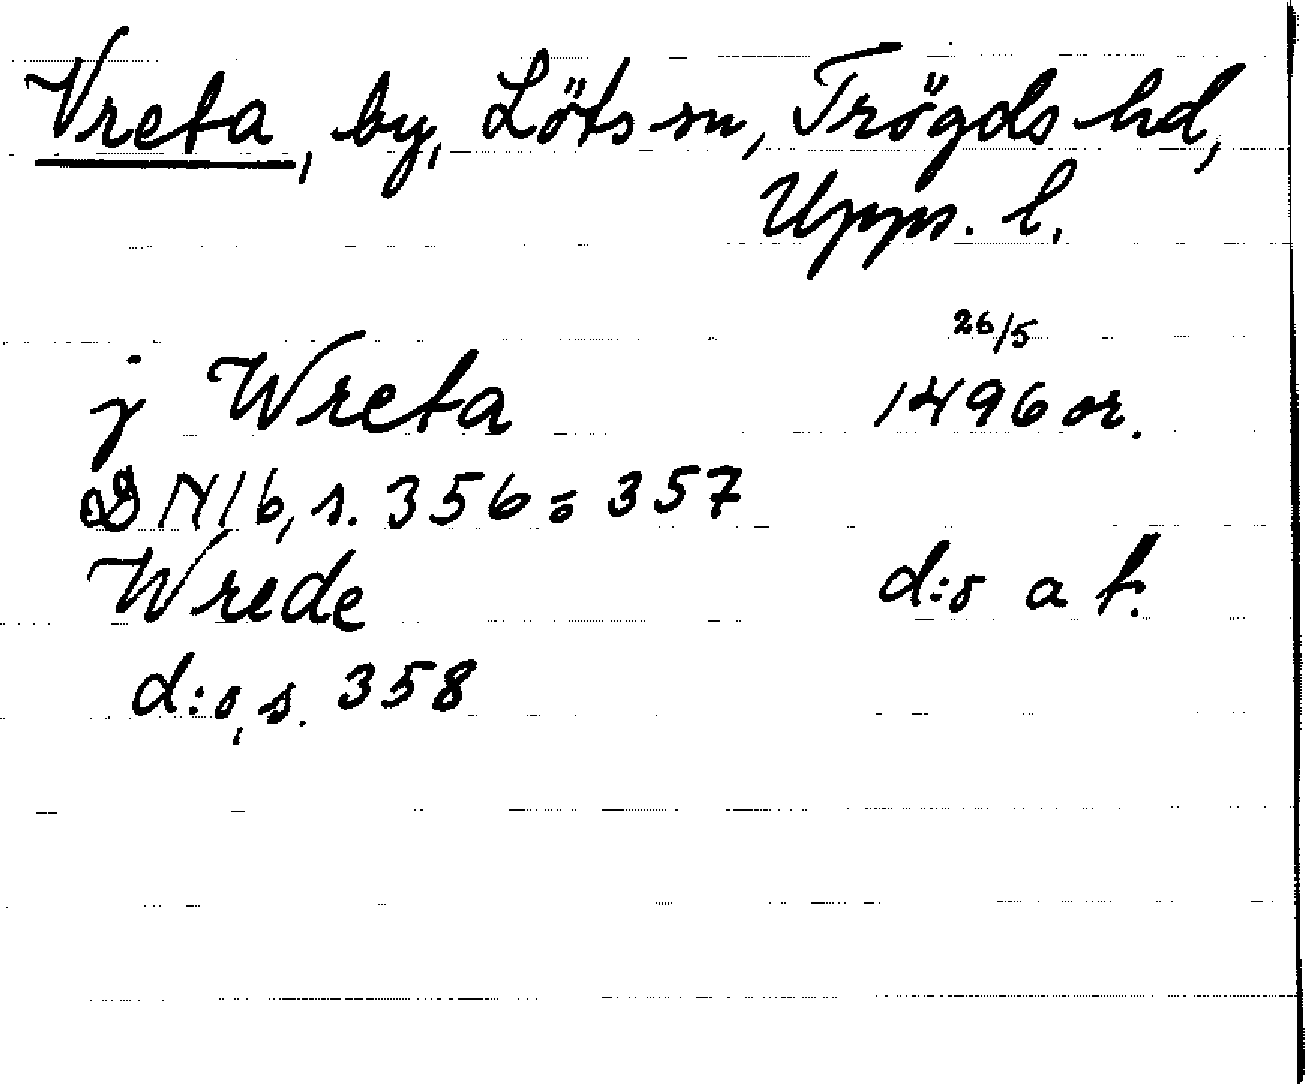 Vreta, by, Löts sn, Trögds hd,
Upps. l.
j Wreta 26/5 1496 or.
DN 16, s. 356 = 357
Wrede d:o a f.
d:o, s. 358